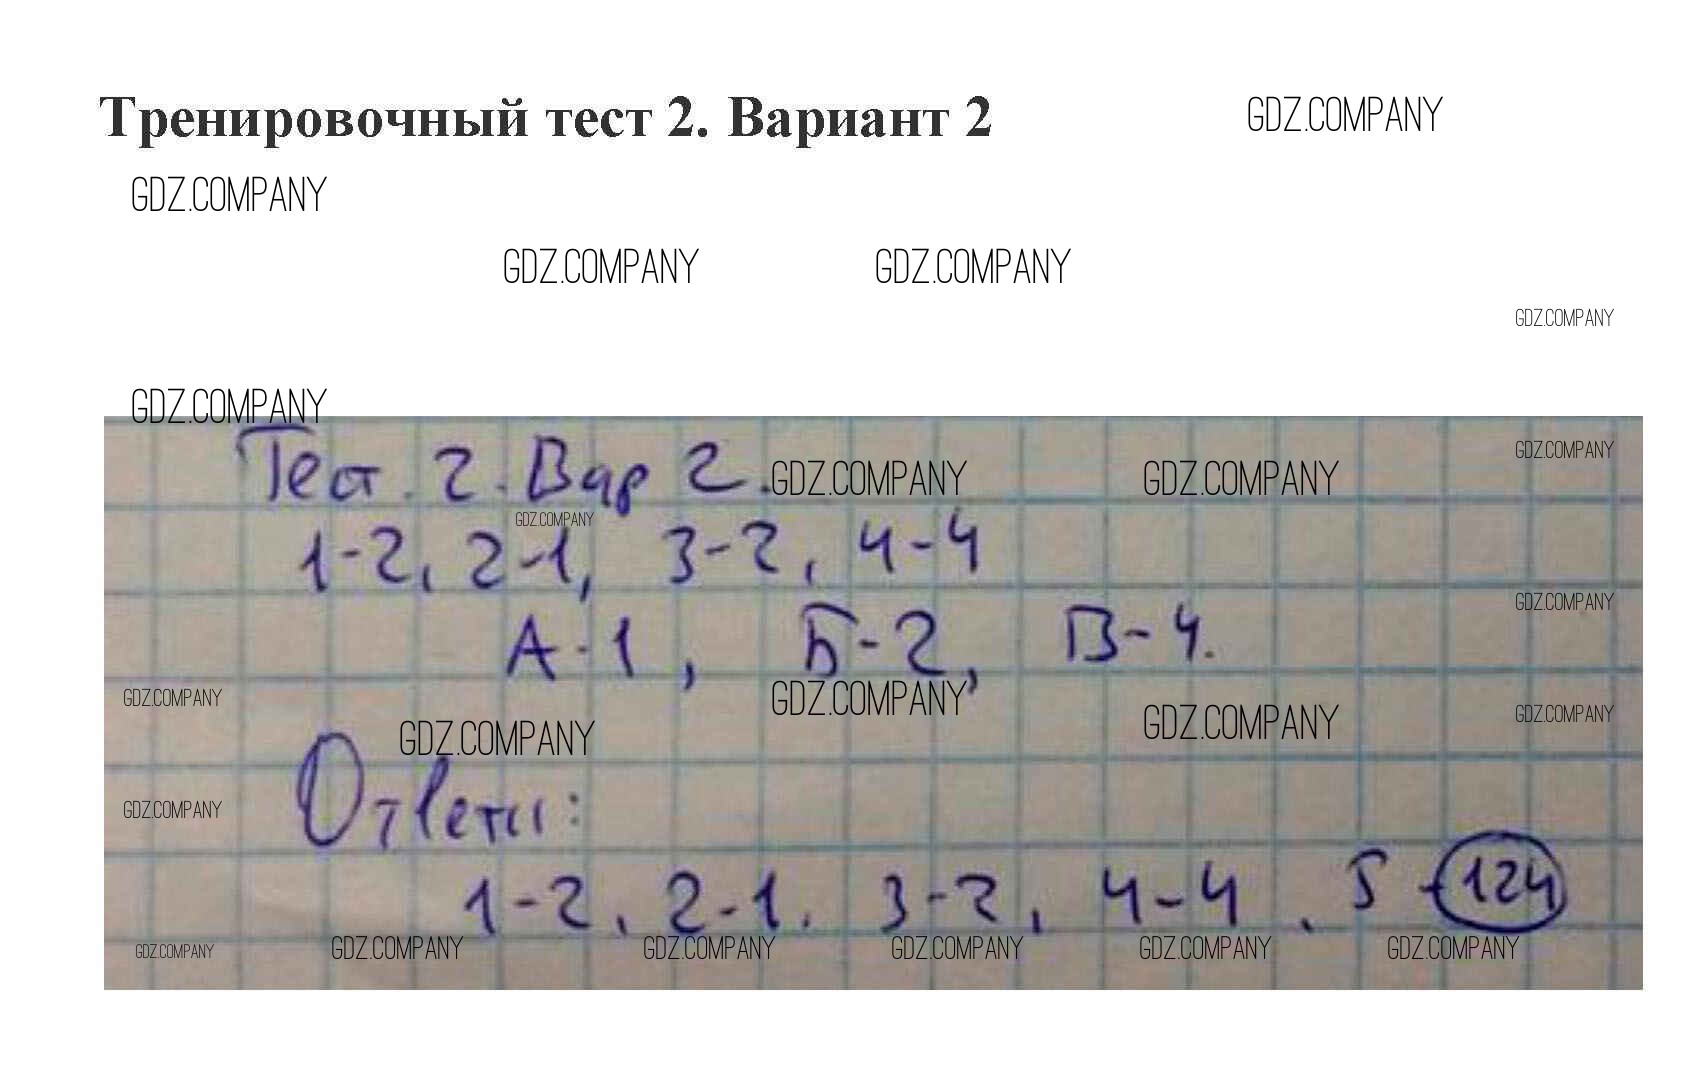 Тренировочный тест 2. Вариант 2
GDZ.COMPANY
GDZ.COMPANY
GDZ.COMPANY GDZ.COMPANY
GDZ.COMPANY
GDZ.COMPANY
GDZ.COMPANY
Тест. 2. Вар 2.
GDZ.COMPANY GDZ.COMPANY
GDZ.COMPANY
1-2, 2-1, 3-2, 4-4
GDZ.COMPANY
А-1, Б-2, В-4.
GDZ.COMPANY GDZ.COMPANY
GDZ.COMPANY GDZ.COMPANY GDZ.COMPANY
Ответы:
GDZ.COMPANY
1-2, 2-1. 3-2, 4-4. 5-124
GDZ.COMPANY GDZ.COMPANY GDZ.COMPANY GDZ.COMPANY GDZ.COMPANY GDZ.COMPANY